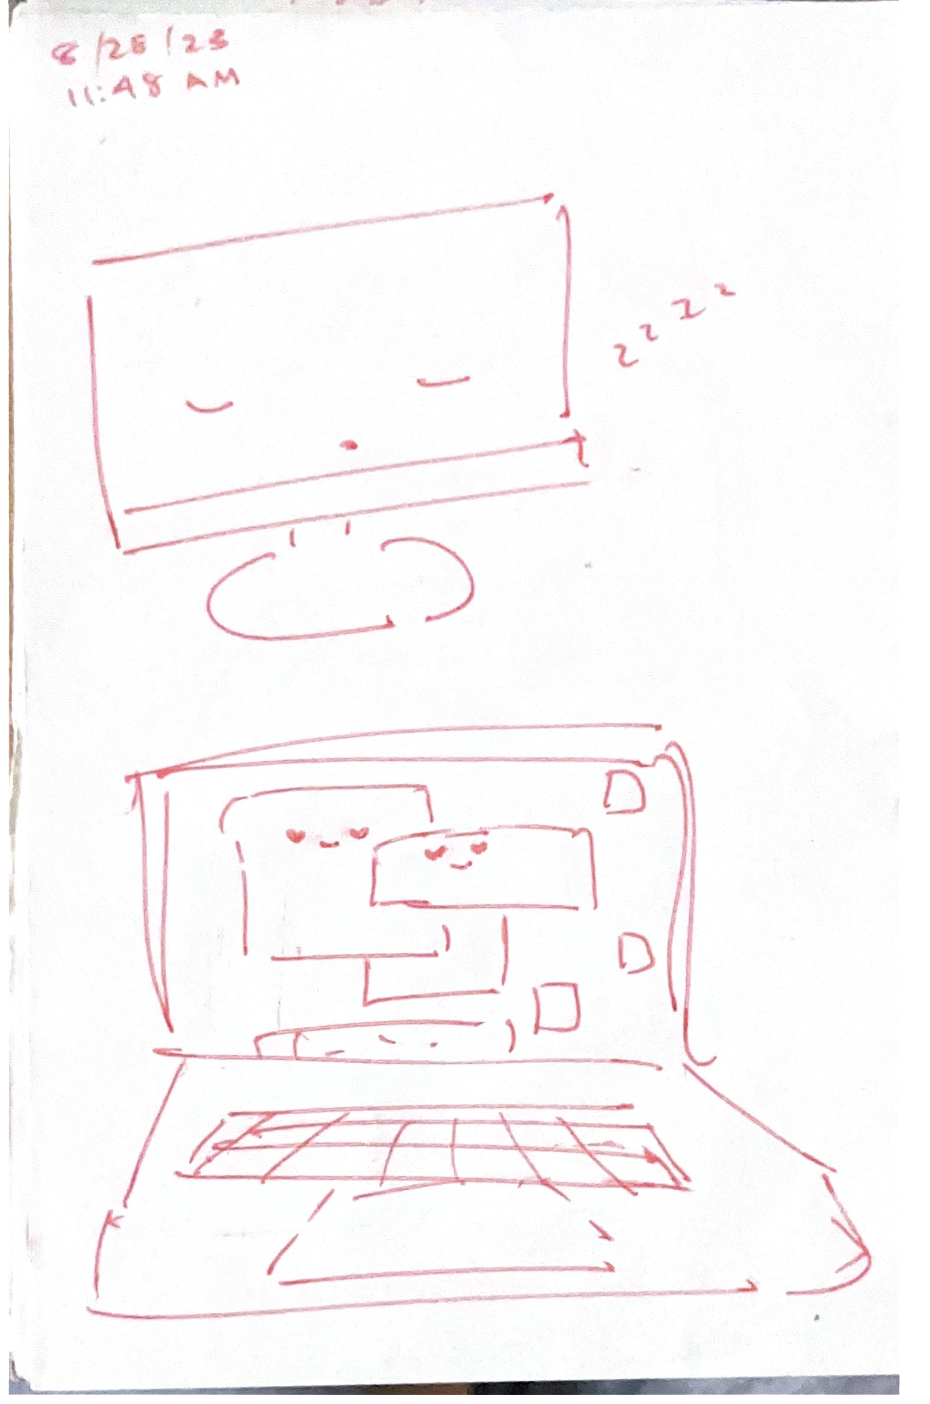 8/28/23
11:48 AM
z z z z